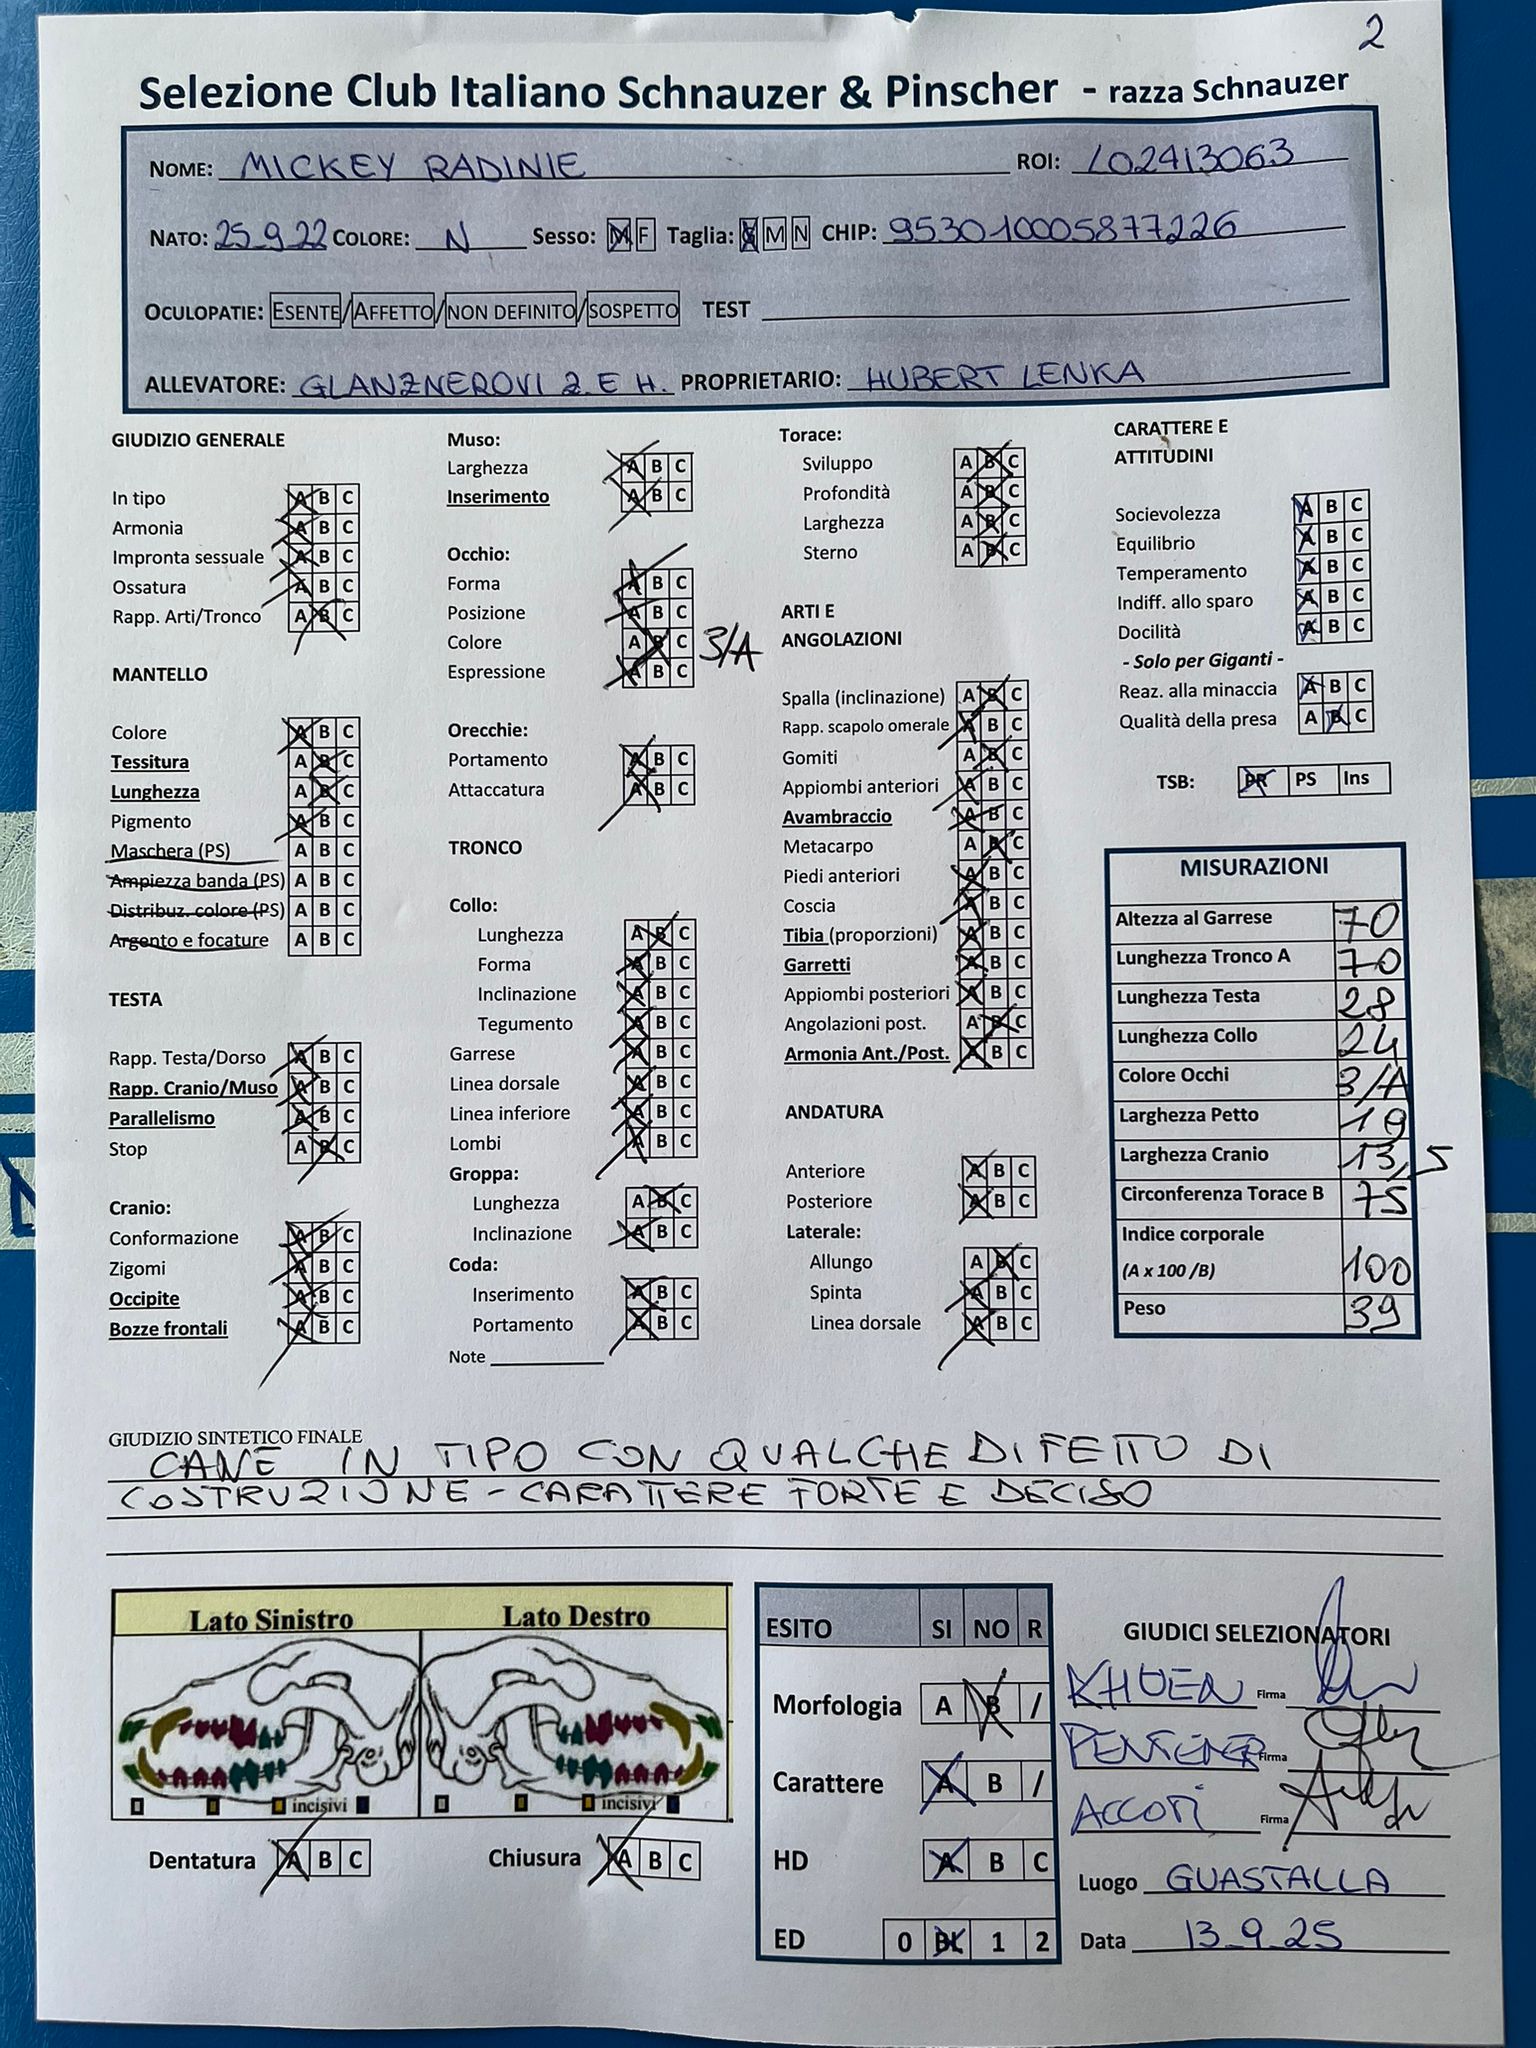 2
Selezione Club Italiano Schnauzer & Pinscher - razza Schnauzer
NOME: MICKEY RADINIE ROI: LO2413063
NATO: 25.9.22 COLORE: N Sesso: M F Taglia: G M N CHIP: 953010005877226
OCULOPATIE: ESENTE/AFFETTO/NON DEFINITO/SOSPETTO TEST
ALLEVATORE: GLANZNEROVI Z. E H. PROPRIETARIO: HUBERT LENKA
GIUDIZIO GENERALE
In tipo A B C
Armonia A B C
Impronta sessuale A B C
Ossatura A B C
Rapp. Arti/Tronco A B C
MANTELLO
Colore A B C
Tessitura A B C
Lunghezza A B C
Pigmento A B C
Maschera (PS) A B C
Ampiezza banda (PS) A B C
Distribuz. colore (PS) A B C
Argento e focature A B C
TESTA
Rapp. Testa/Dorso A B C
Rapp. Cranio/Muso A B C
Parallelismo A B C
Stop A B C
Cranio:
Conformazione A B C
Zigomi A B C
Occipite A B C
Bozze frontali A B C
Muso:
Larghezza A B C
Inserimento A B C
Occhio:
Forma A B C
Posizione A B C
Colore A B C 3/A
Espressione A B C
Orecchie:
Portamento A B C
Attaccatura A B C
TRONCO
Collo:
Lunghezza A B C
Forma A B C
Inclinazione A B C
Tegumento A B C
Garrese A B C
Linea dorsale A B C
Linea inferiore A B C
Lombi A B C
Groppa:
Lunghezza A B C
Inclinazione A B C
Coda:
Inserimento A B C
Portamento A B C
Note
Torace:
Sviluppo A B C
Profondità A B C
Larghezza A B C
Sterno A B C
ARTI E
ANGOLAZIONI
Spalla (inclinazione) A B C
Rapp. scapolo omerale A B C
Gomiti A B C
Appiombi anteriori A B C
Avambraccio A B C
Metacarpo A B C
Piedi anteriori A B C
Coscia A B C
Tibia (proporzioni) A B C
Garretti A B C
Appiombi posteriori A B C
Angolazioni post. A B C
Armonia Ant./Post. A B C
ANDATURA
Anteriore A B C
Posteriore A B C
Laterale:
Allungo A B C
Spinta A B C
Linea dorsale A B C
CARATTERE E
ATTITUDINI
Socievolezza A B C
Equilibrio A B C
Temperamento A B C
Indiff. allo sparo A B C
Docilità A B C
- Solo per Giganti -
Reaz. alla minaccia A B C
Qualità della presa A B C
TSB: PR PS Ins
MISURAZIONI
Altezza al Garrese 70
Lunghezza Tronco A 70
Lunghezza Testa 28
Lunghezza Collo 24
Colore Occhi 3/A
Larghezza Petto 19
Larghezza Cranio 13,5
Circonferenza Torace B 75
Indice corporale
(A x 100 /B) 100
Peso 39
GIUDIZIO SINTETICO FINALE
CANE IN TIPO CON QUALCHE DIFETTO DI
COSTRUZIONE - CARATTERE FORTE E DECISO
Lato Sinistro Lato Destro
incisivi incisivi
Dentatura A B C Chiusura A B C
ESITO SI NO R
Morfologia A B /
Carattere A B /
HD A B C
ED 0 BL 1 2
GIUDICI SELEZIONATORI
KHUEN Firma
Firma
ACCOTI Firma
Luogo GUASTALLA
Data 13.9.25